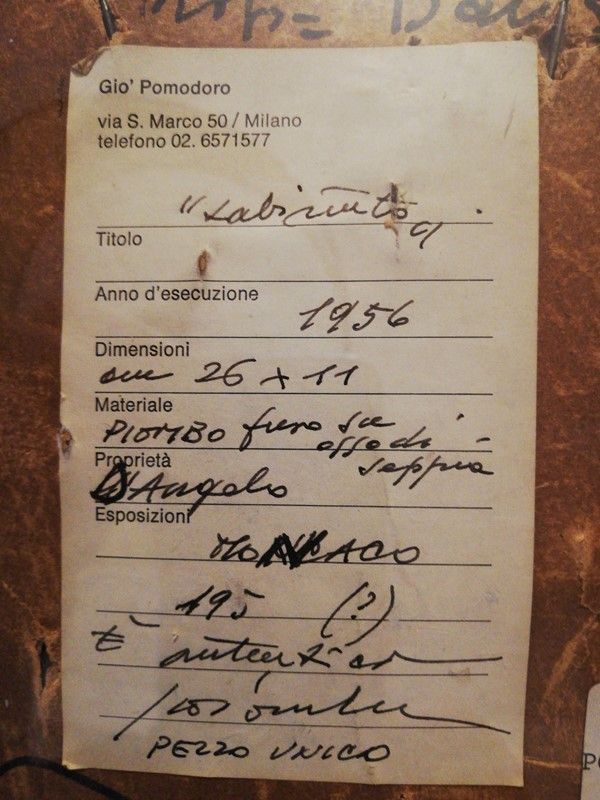 Gio' Pomodoro
via S. Marco 50 / Milano
telefono 02. 6571577
"Labirinto"
Titolo
Anno d'esecuzione
1956
Dimensioni
cm 26 x 11
Materiale
PIOMBO fuso su
osso di
seppia
Proprietà
D'Angelo
Esposizioni
MONACO
195 (?)
È autentico
PEZZO UNICO